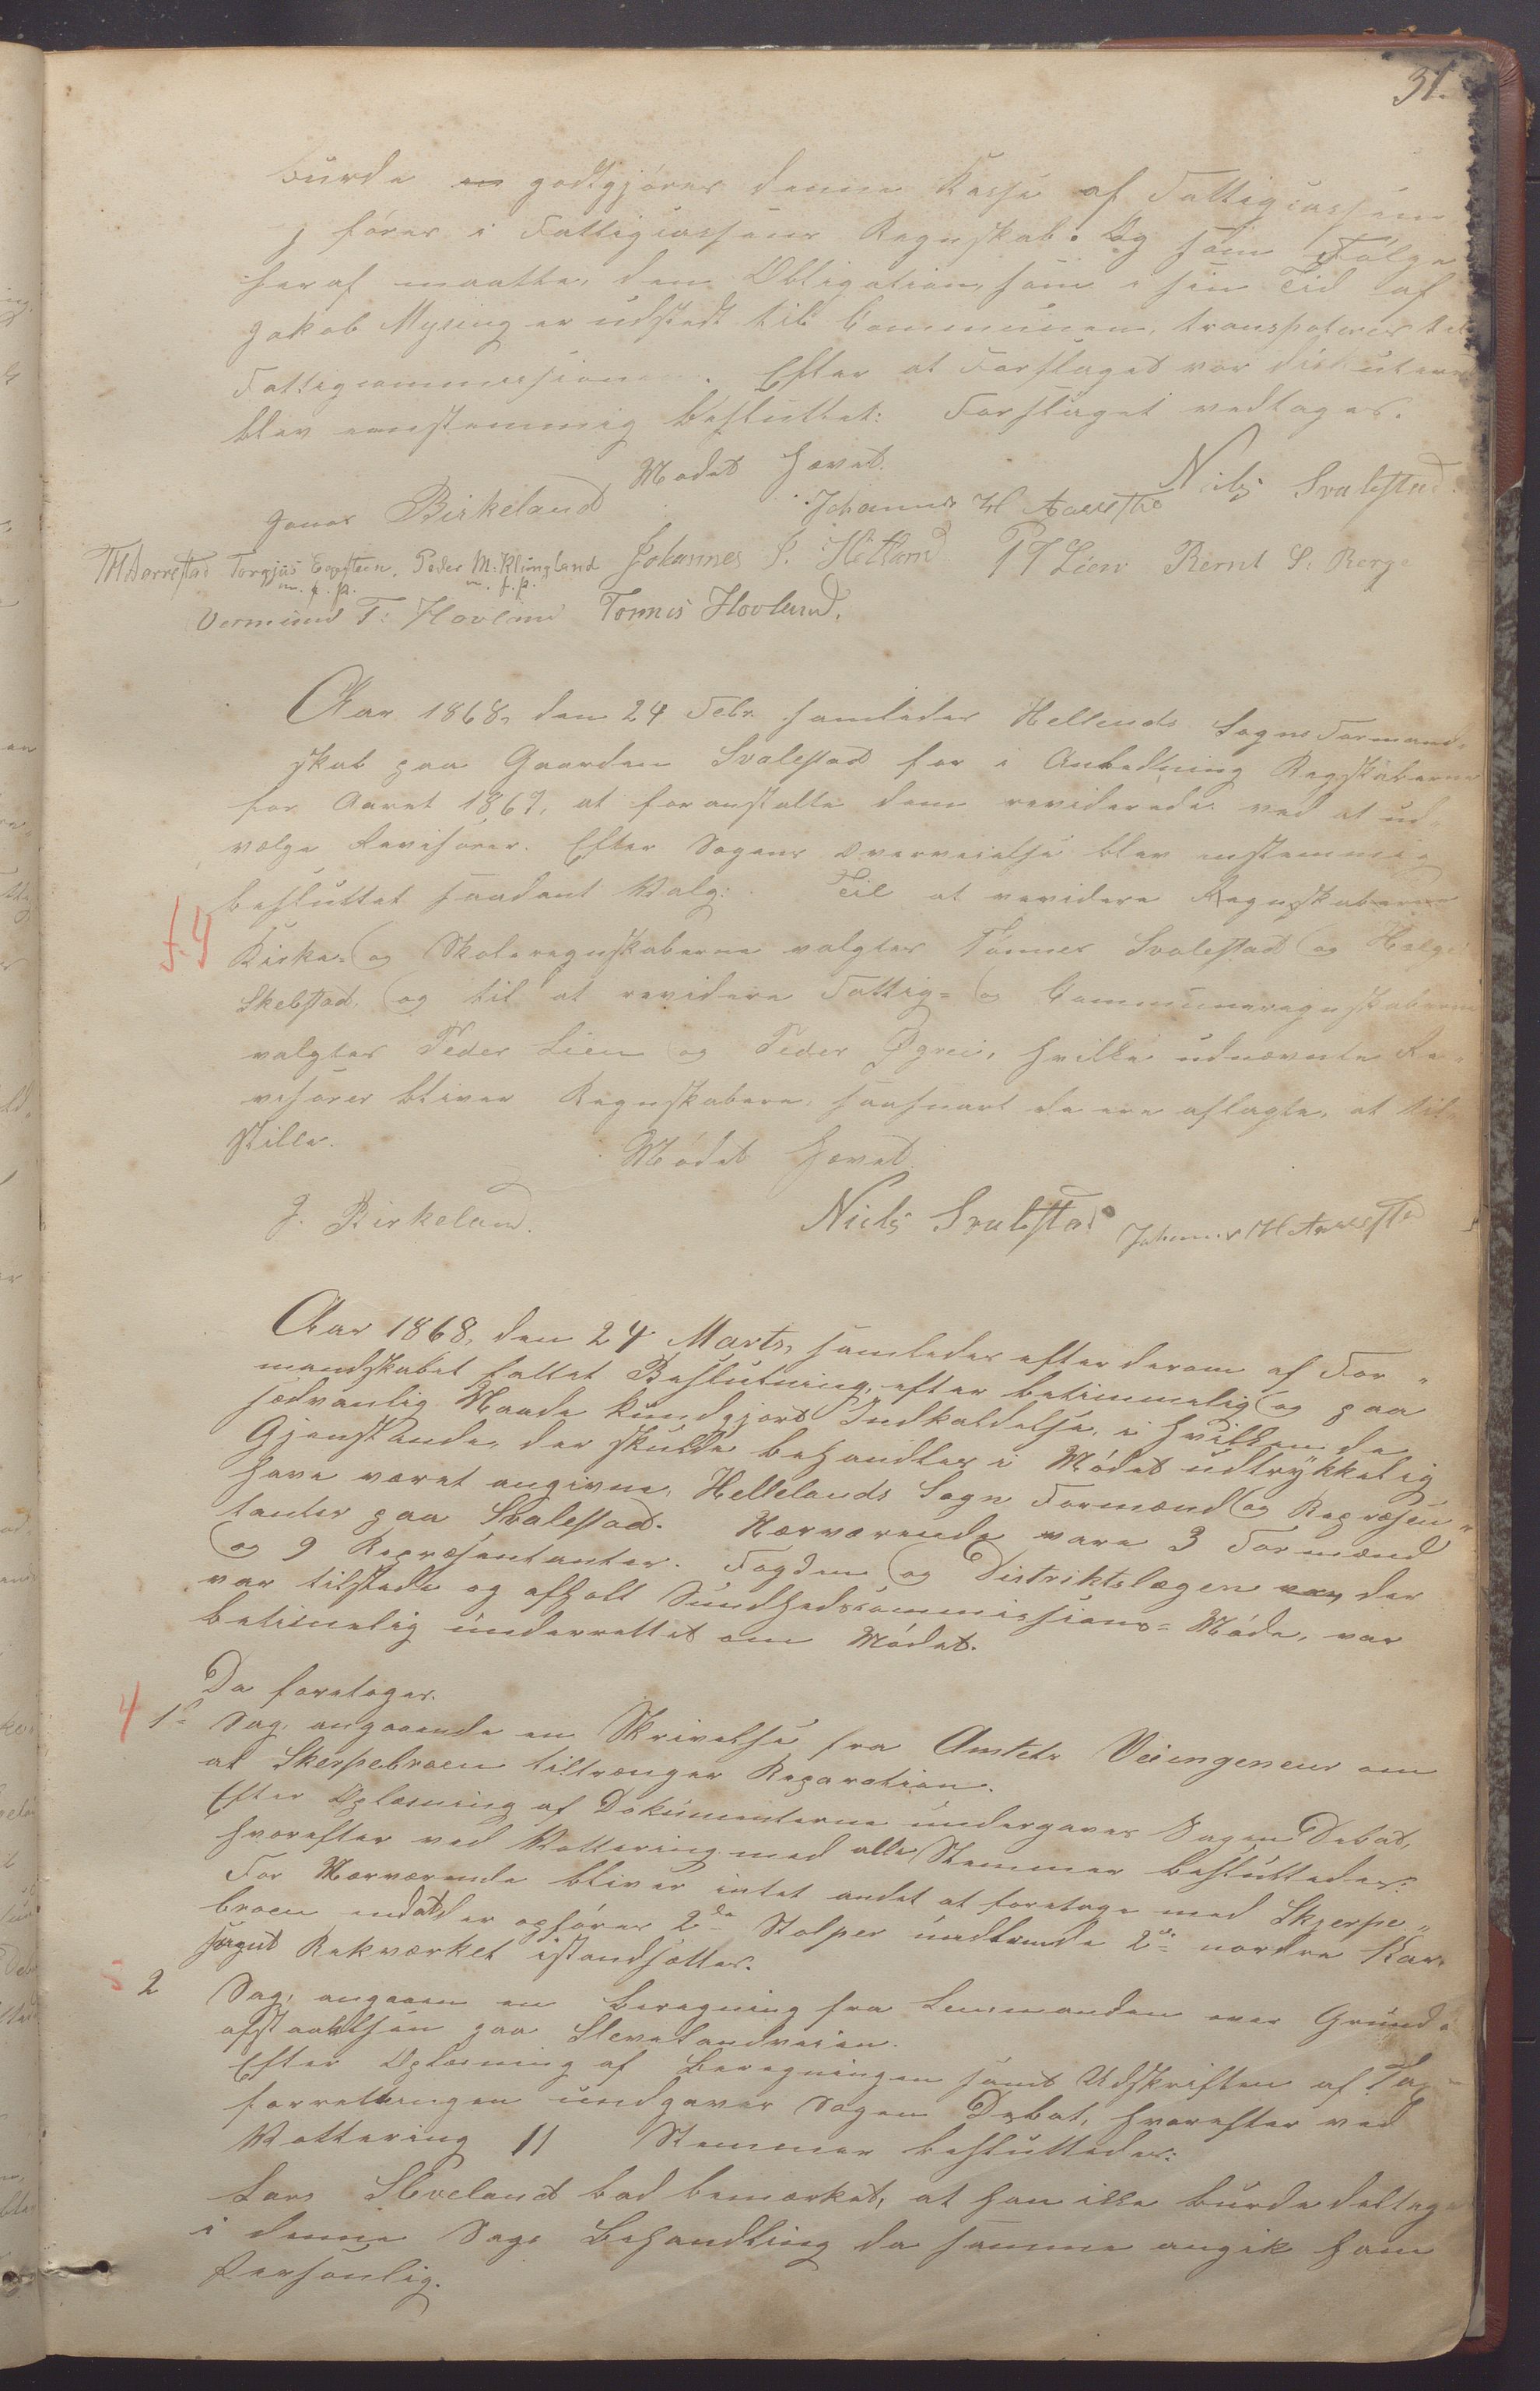 31.
burde godtgjøres denne Kasse af Fattigcassen
føres i Fattigcassens Regnskab. Og som Følge
heraf maatte den Obligation, som i sin Tid af
Jakob Mysing er udstedt til Communen, transporteres til
Fattigcommissionen. Efter at Forslaget var diskuteret
blev eenstemmig besluttet: Forslaget vedtages.
Mødet hævet.
Niels Svalestad.
Jonas Birkeland Johannes H Aarrestad
TH Aarrestad Torgjus Eegsteen. Peder M. Klungland Johannes J. Hetland P T Lien Bernt S. Berge
m. f. p. m. f. p.
Vermund T. Hovland Tønnes Hovland.
Aar 1868, den 24 Febr. samledes Hellelands Sogns Formand-
skab paa Gaarden Svalestad for i Anledning Regnskaberne
for Aaret 1867, at foranstalte dem reviderede ved at ud-
vælge Revisorer. Efter Sagens Overveielse blev enstemmig
besluttet saadant Valg: Til at revidere Regnskaberne
f. 4
Kirke- og Skoleregnskaberne valgtes Tønnes Svalestad og Helge
Skebstad, og til at revidere Fattig- og Communeregnskaberne
valgtes Peder Lien og Peder Øgrei, hvilke udnævnte Re-
visorer bliver Regnskabene, saasnart de ere aflagte, at til-
stille.
Mødet hævet.
J. Birkeland. Niels Svalestad Johannes H Aarrestad
Aar 1868, den 24 Marts, samledes efter derom af For-
mandskabet fattet Beslutning, efter betimmelig og paa
sædvanlig Maade kundgjord Indkaldelse, i hvilken de
Gjenstande, der skulde behandles i Mødet udtrykkelig
have været angivne, Hellelands Sogn Formænd og Repræsen-
tanter paa Svalestad. Nærværende vare 3 Formænd
og 9 Repræsentanter. Fogden og Distriktslægen var, der
var tilstede og afholt Sundhedscommissions-Møde, var
betimelig underrettet om Mødet.
Da foretoges.
4 1ᵒ Sag, angaaende en Skrivelse fra Amtets Veiingeneur om
at Skerpebroen tiltrænger Reparation.
Efter Oplæsning af Dokumenterne undergaves Sagen Debat,
hvorefter ved Vottering med alle Stemmer besluttedes:
For Nærværende bliver intet andet at foretage med Skjerpe-
broen endatder opføres 2de Stolper under de 2de nordre Kar,
sagut Rekværket istandsættes.
5 2 Sag, angaaen en Beregning fra Lensmanden over Grund-
afstaaelsen paa Slevelandveien.
Efter Oplæsning af Beregningen samt Udskriften af Tax-
forretningen undgaves Sagen Debat, hvorefter ved
Vottering 11 Stemmer besluttedes:
Lars Sleveland bad bemærket, at han ikke burde deltage
i denne Sags Behandling da samme angik ham
Personlig.